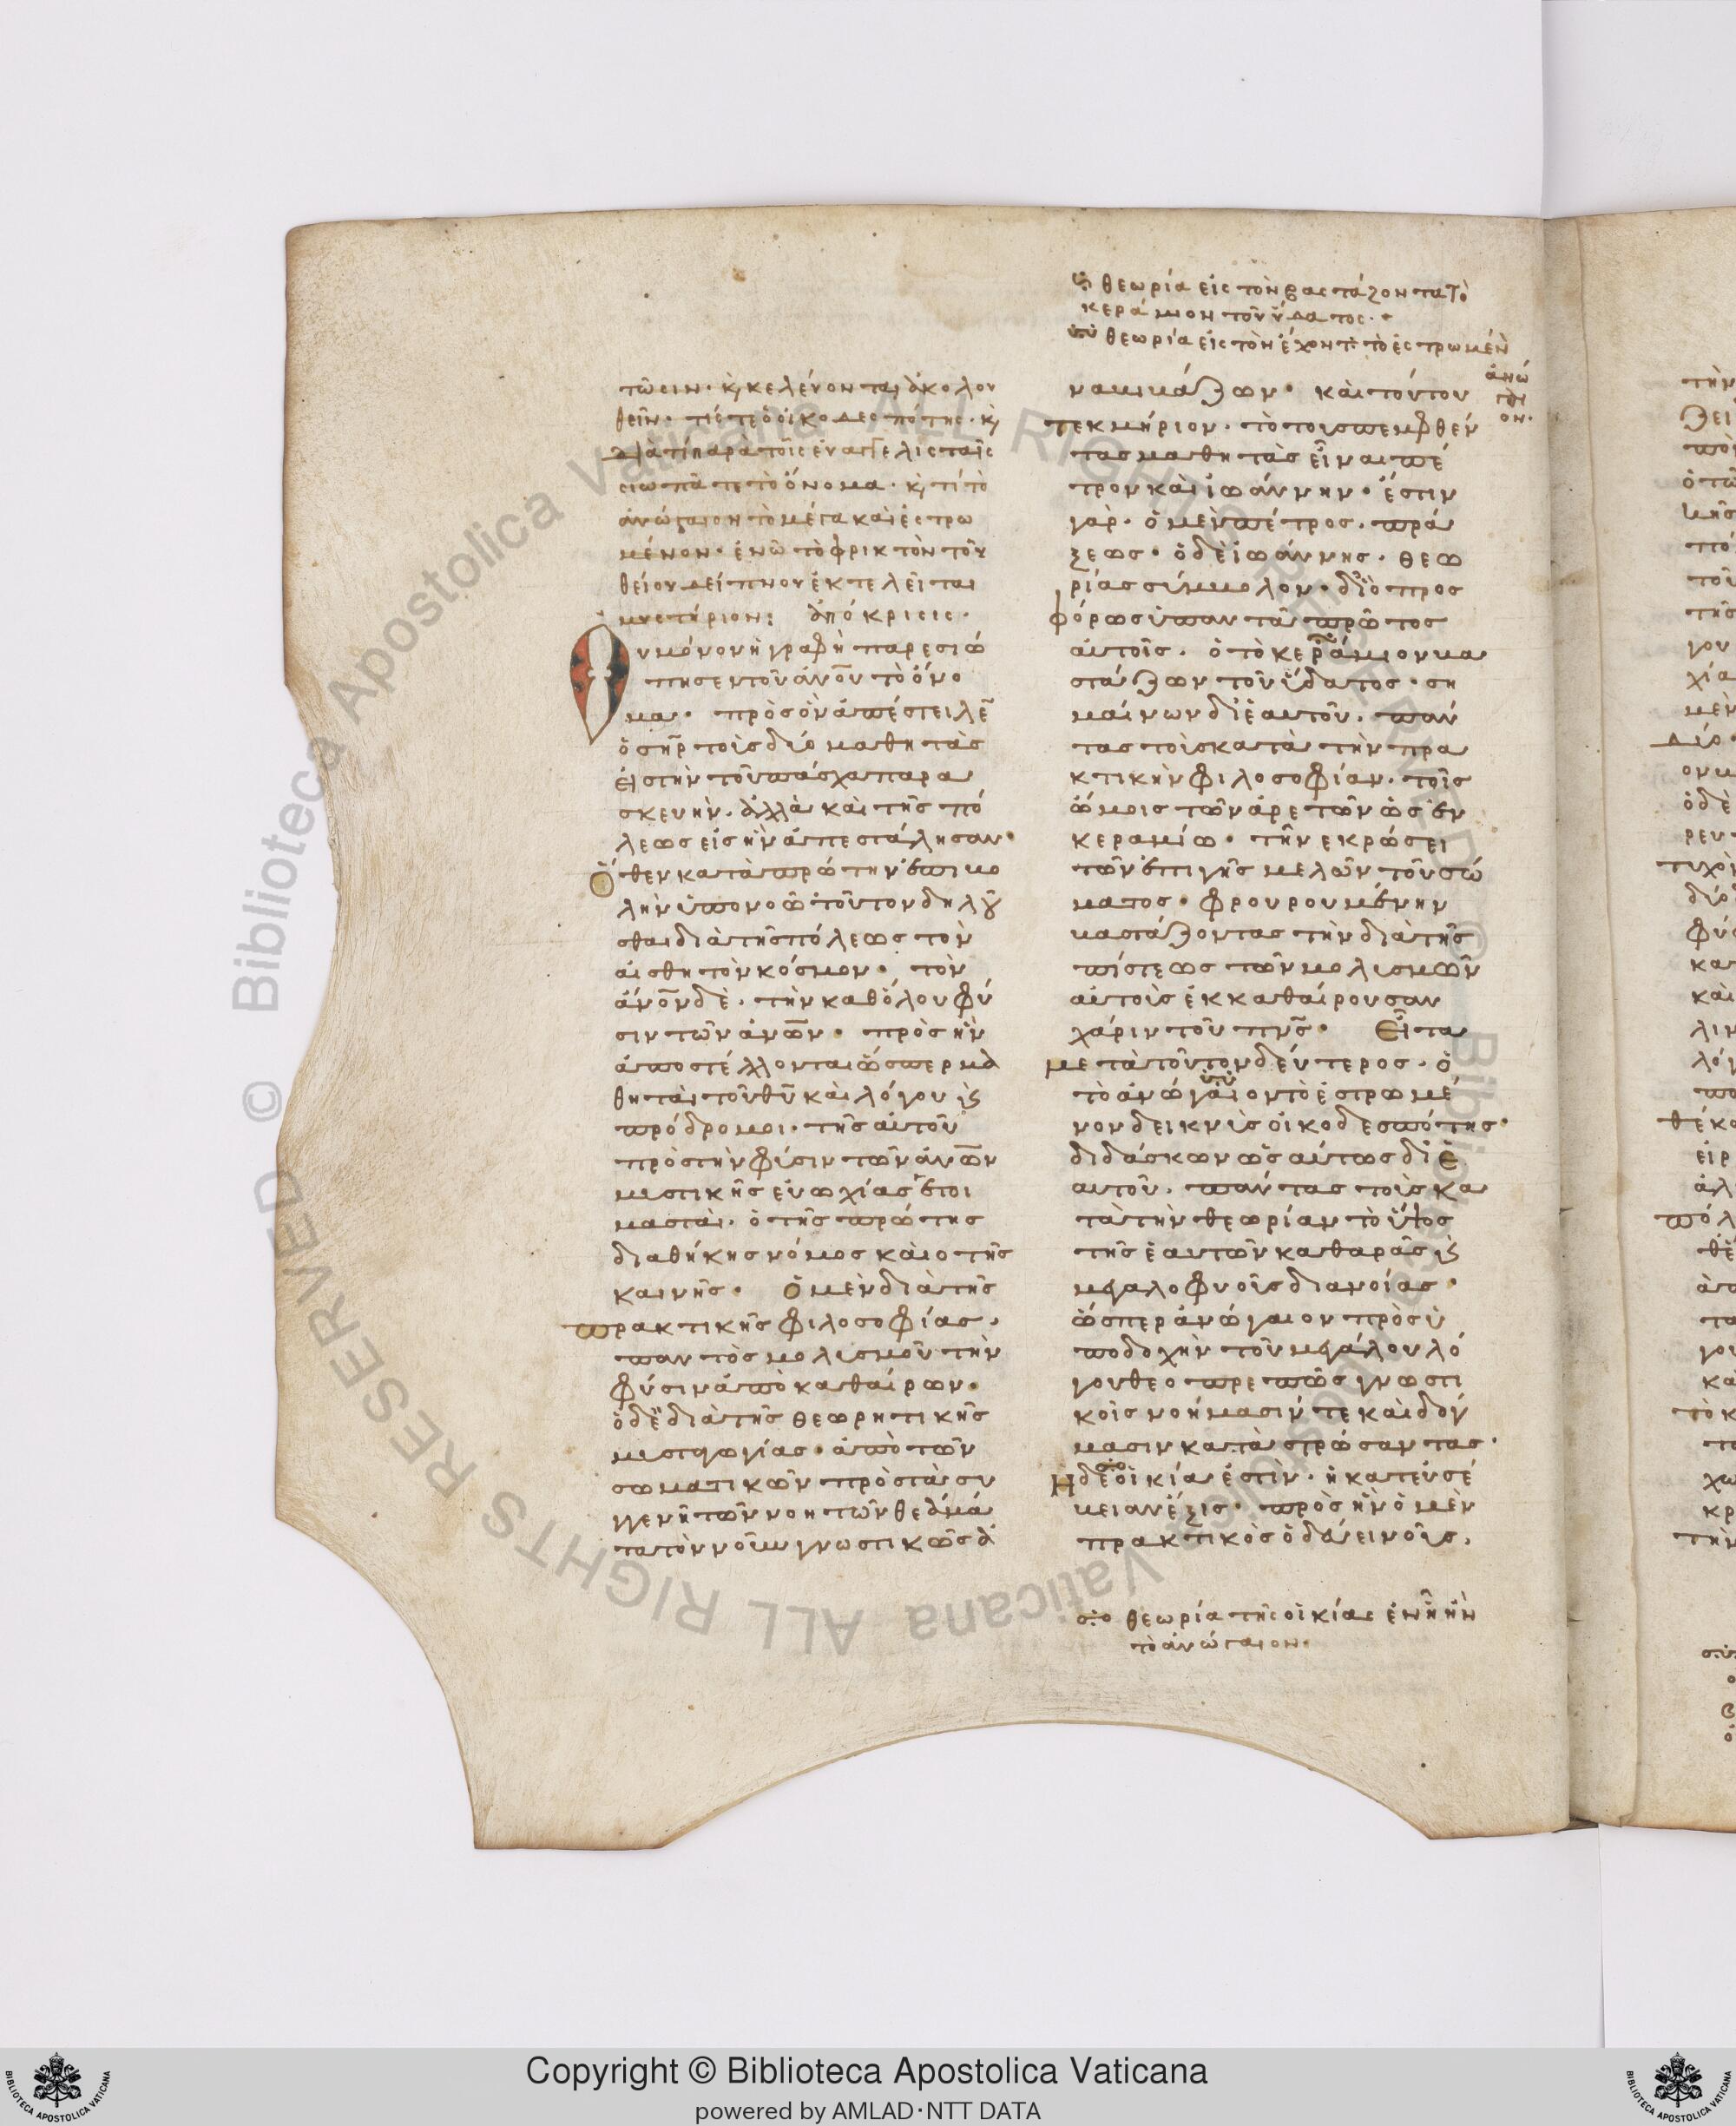 θεωρία εἰς τὸν βαστάζοντα τὸ
κεράμιον τοῦ ὕδατος·
θεωρία εἰς τὸν ἔχοντ τὸ ἐστρωμέν
ἀνώ
γαι
ον·
τῶσιν· κ κελεύονται ἀκολου
θεῖν· τίς τε ὁ οἰκοδεσπότης· κ
διατί παρὰ τοῖς εὐαγγελισταῖς
σιωπᾶται τὸ ὄνομα· κ τί τὸ
ἀνώγαιον τὸ μέγα καὶ ἐστρω
μένον· ἐν ῶ τὸ φρικτὸν τοῦ
θείου δείπνου ἐκτελεῖται
μυστήριον: ἀπόκρισις·
Οὐ μόνον ἡ γραφὴ παρεσιώ
πησεν τοῦ ἀνου τὸ ὄνο
μα· πρὸς ὃν ἀπέστειλε
ὁ σηρ τοὺς δύο μαθητὰς
εἰς τὴν τοῦ πάσχα παρα
σκευήν· ἀλλὰ καὶ τῆς πό
λεως εἰς ἣν ἀπεστάλησαν·
Ὅθεν κατὰ πρώτην ἐπιβο
λὴν ὑπονοῶ τοῦτον δηλου
σθαι διὰ τῆς πόλεως τὸν
αἰσθητὸν κόσμον· τὸν
ἄνον δὲ· τὴν καθόλου φύ
σιν τῶν ἀνων· πρὸς ἣν
ἀποστέλλονται ὥσπερ μα
θηταὶ τοῦ θυ καὶ λόγου κ
πρόδρομοι· τῆς αὐτοῦ
πρὸς τὴν φύσιν τῶν ἀνων
μυστικῆς εὐωχίας ἑτοι
μασταὶ· ὁ τῆς πρώτης
διαθήκης νόμος καὶ ὁ τῆς
καινῆς· Ὁ μὲν διὰ τῆς
πρακτικῆς φιλοσοφίας·
παντὸς μολυσμοῦ τὴν
φύσιν ἀποκαθαίρων·
ὁ δὲ διὰ τῆς θεωρητικῆς
μυσταγωγίας· ἀπὸ τῶν
σωματικῶν πρὸς τὰ συ
γγενῆ τῶν νοητῶν θεάμα
τα τὸν νοῦν γνωστικῶς ἀ
ναβιβάζων· καὶ τούτου
τεκμήριον· τὸ τοὺς πεμφθέν
τας μαθητὰς εἶναι πέ
τρον καὶ ἰωάννην· ἔστιν
γὰρ· ὁ μὲν πέτρος· πρά
ξεως· ὁ δὲ ἰωάννης· θεω
ρίας σύμβολον· διὸ προσ
φόρως ὑπαντᾶ πρῶτος
αὐτοῖς· ὁ τὸ κεράμιον βα
στάζων τοῦ ὕδατος· ση
μαίνων δι ἑαυτοῦ· πάν
τας τοὺς κατὰ τὴν πρα
κτικὴν φιλοσοφίαν· τοῖς
ὤμοις τῶν ἀρετῶν ὡς ἐν
κεραμίω· τῆ νεκρώσει
τῶν ἐπι γῆς μελῶν τοῦ σώ
ματος· φρουρουμένην
βαστάζοντας τὴν διὰ τῆς
πίστεως τῶν μολυσμῶν
αὐτοὺς ἐκκαθαίρουσαν
χάριν τοῦ πνς· Εἶτα
μετὰ τοῦτον δεύτερος· ὁ
τὸ ἀνώγαιον τὸ ἐστρωμέ
νον δεικνὺς οἰκοδεσπότης·
διδάσκων ὡσαύτως δι ἑ
αυτοῦ· πάντας τοὺς κα
τὰ τὴν θεωρίαν τὸ ὕψος
τῆς ἑαυτῶν καθαρᾶς κ
μεγαλοφυοῦς διανοίας·
ὥσπερ ἀνώγαιον πρὸς ὑ
ποδοχὴν τοῦ μεγάλου λό
γου θεοπρεπῶς γνωστι
κοῖς νοήμασίν τε καὶ δόγ
μασιν καταστρώσαντας·
Ἡ δὲ οἰκία ἐστὶν· ἡ κατ εὐσέ
βειαν ἕξις· πρὸς ἣν ὁ μὲν
πρακτικὸς ὁδεύει νοῦς,
θεωρία τῆς οἰκίας ἐν ἧ ἦν
τὸ ἀνώγαιον·
Copyright © Biblioteca Apostolica Vaticana
powered by AMLAD·NTT DATA
© Biblioteca Apostolica Vaticana ALL RIGHTS RESERVED
BIBLIOTECA APOSTOLICA VATICANA
BIBLIOTECA APOSTOLICA VATICANA